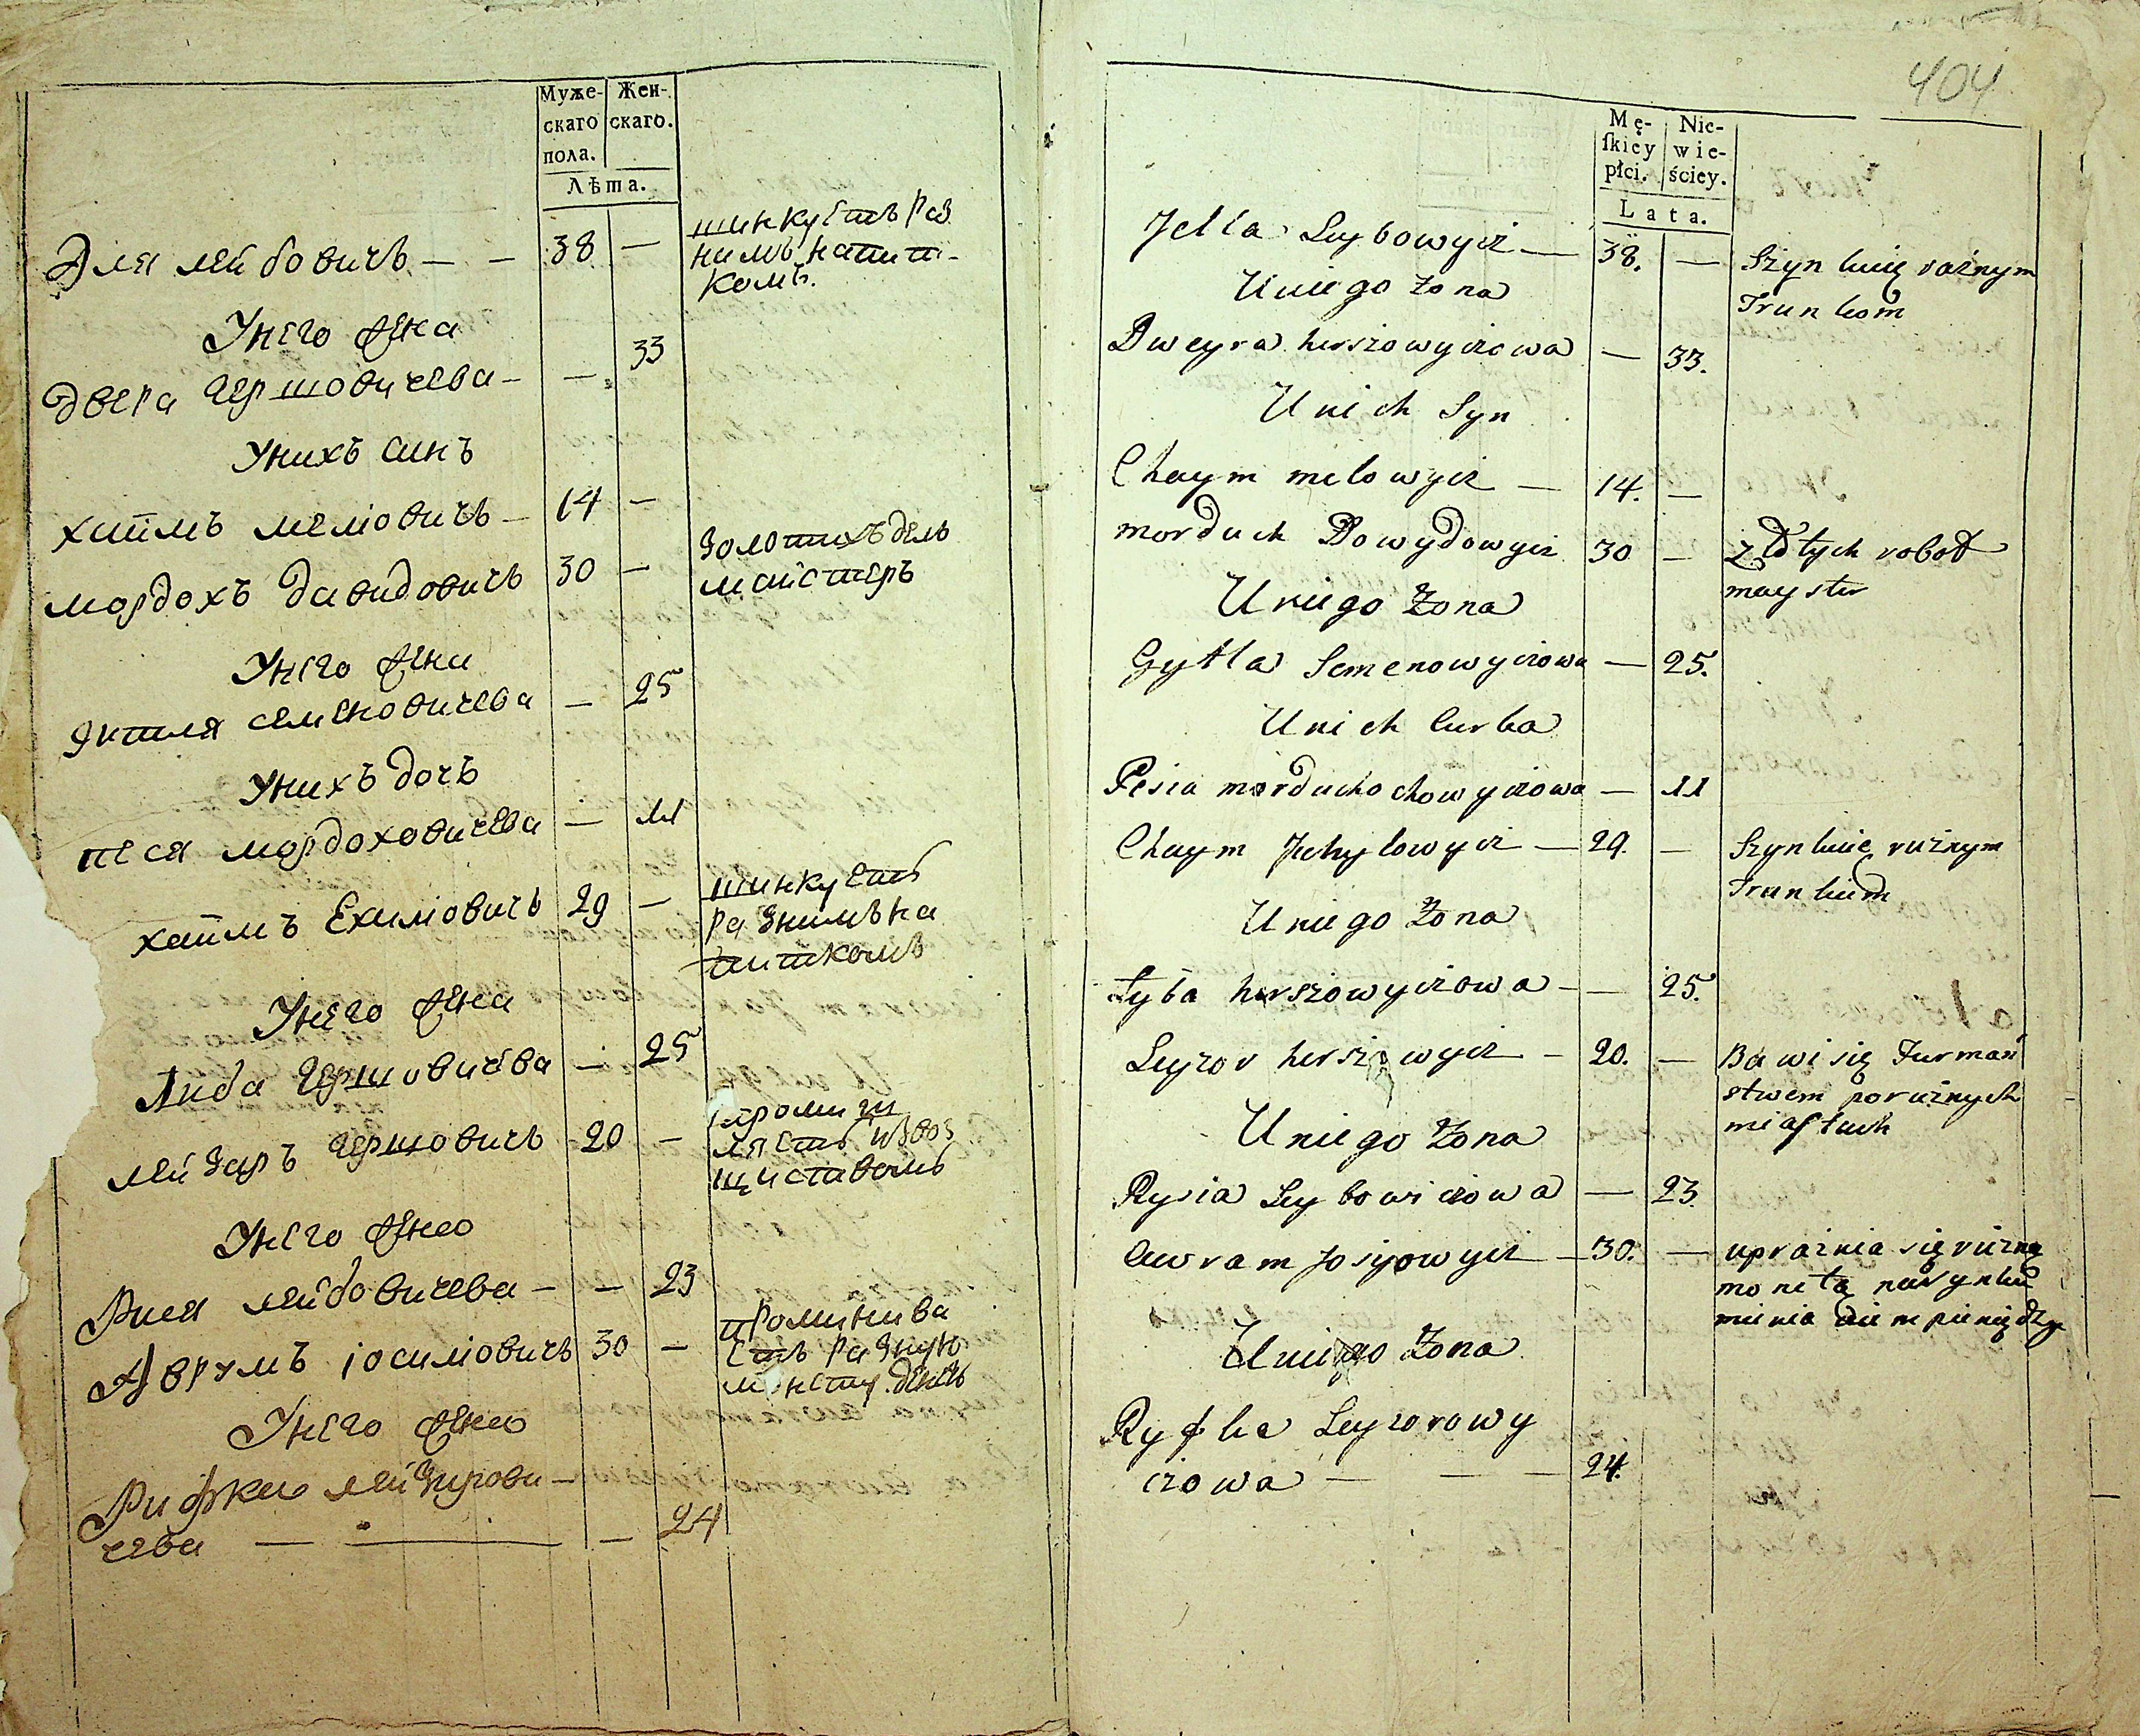 Муже-
скаго
пола.
Жен-
скаго.
Лѣта.
Эля лейбовичъ — — 38 —
шинкуетъ раз
нимъ напит-
комъ.
Унего жена
двера гершовичева — — 33
Унихъ синъ
хаимъ меліовичъ — 14 —
мордохъ давидовичъ 30 —
золотихъ дель
майстеръ
Унего жена
гитля семеновичева — 25
Унихъ дочъ
песя мордоховичева — 11
хаимъ Ехиліовичъ 29 —
шинкуетъ
разнимъ на
питкомъ
Унего жена
Либа гершовичева — 25
лейзаръ гершовичъ 20 —
промиш
ляетъ извоз
щиставомъ
Унего жена
Рися лейбовичева — — 23
Аврумъ іосиліовичъ 30 —
променива
етъ разную
монету денегъ
Унего жена
Рифка лейзирови —
чева — — — 24
404
Mę-
ſkiey
płci.
Nie-
wie-
ściey.
Lata.
Jella Leybowycz — 38. —
Szynkuię rożnym
Trunkom
Uniego Żona
Dweyra herszowyczowa — 33.
Unich Syn
Chaym melowycz — 14. —
morduch Dowydowycz 30 —
Złotych robot
mayster
Uniego Żona
Gytla Semenowyczowa — 25.
Unich Curka
Pesia morduchochowyczowa — 11
Chaym Jchylowycz — 29. —
Szynkuie rużnym
Trunkium
Uniego Żona
Łyba herszowyczowa — — 25.
Leyzor hersz wycz — 20. —
Bawi się Furmań
stwem porużnych
miaſtach
Uniego Żona
Rysia Leybowiczowa — 23.
Awram Josyowycz — 30. —
uprażnia się rużną
monetą narynku
mieniadiem pieniędzy
Uniego Żona
Ryfka Leyzorowy
czowa — — — 24.